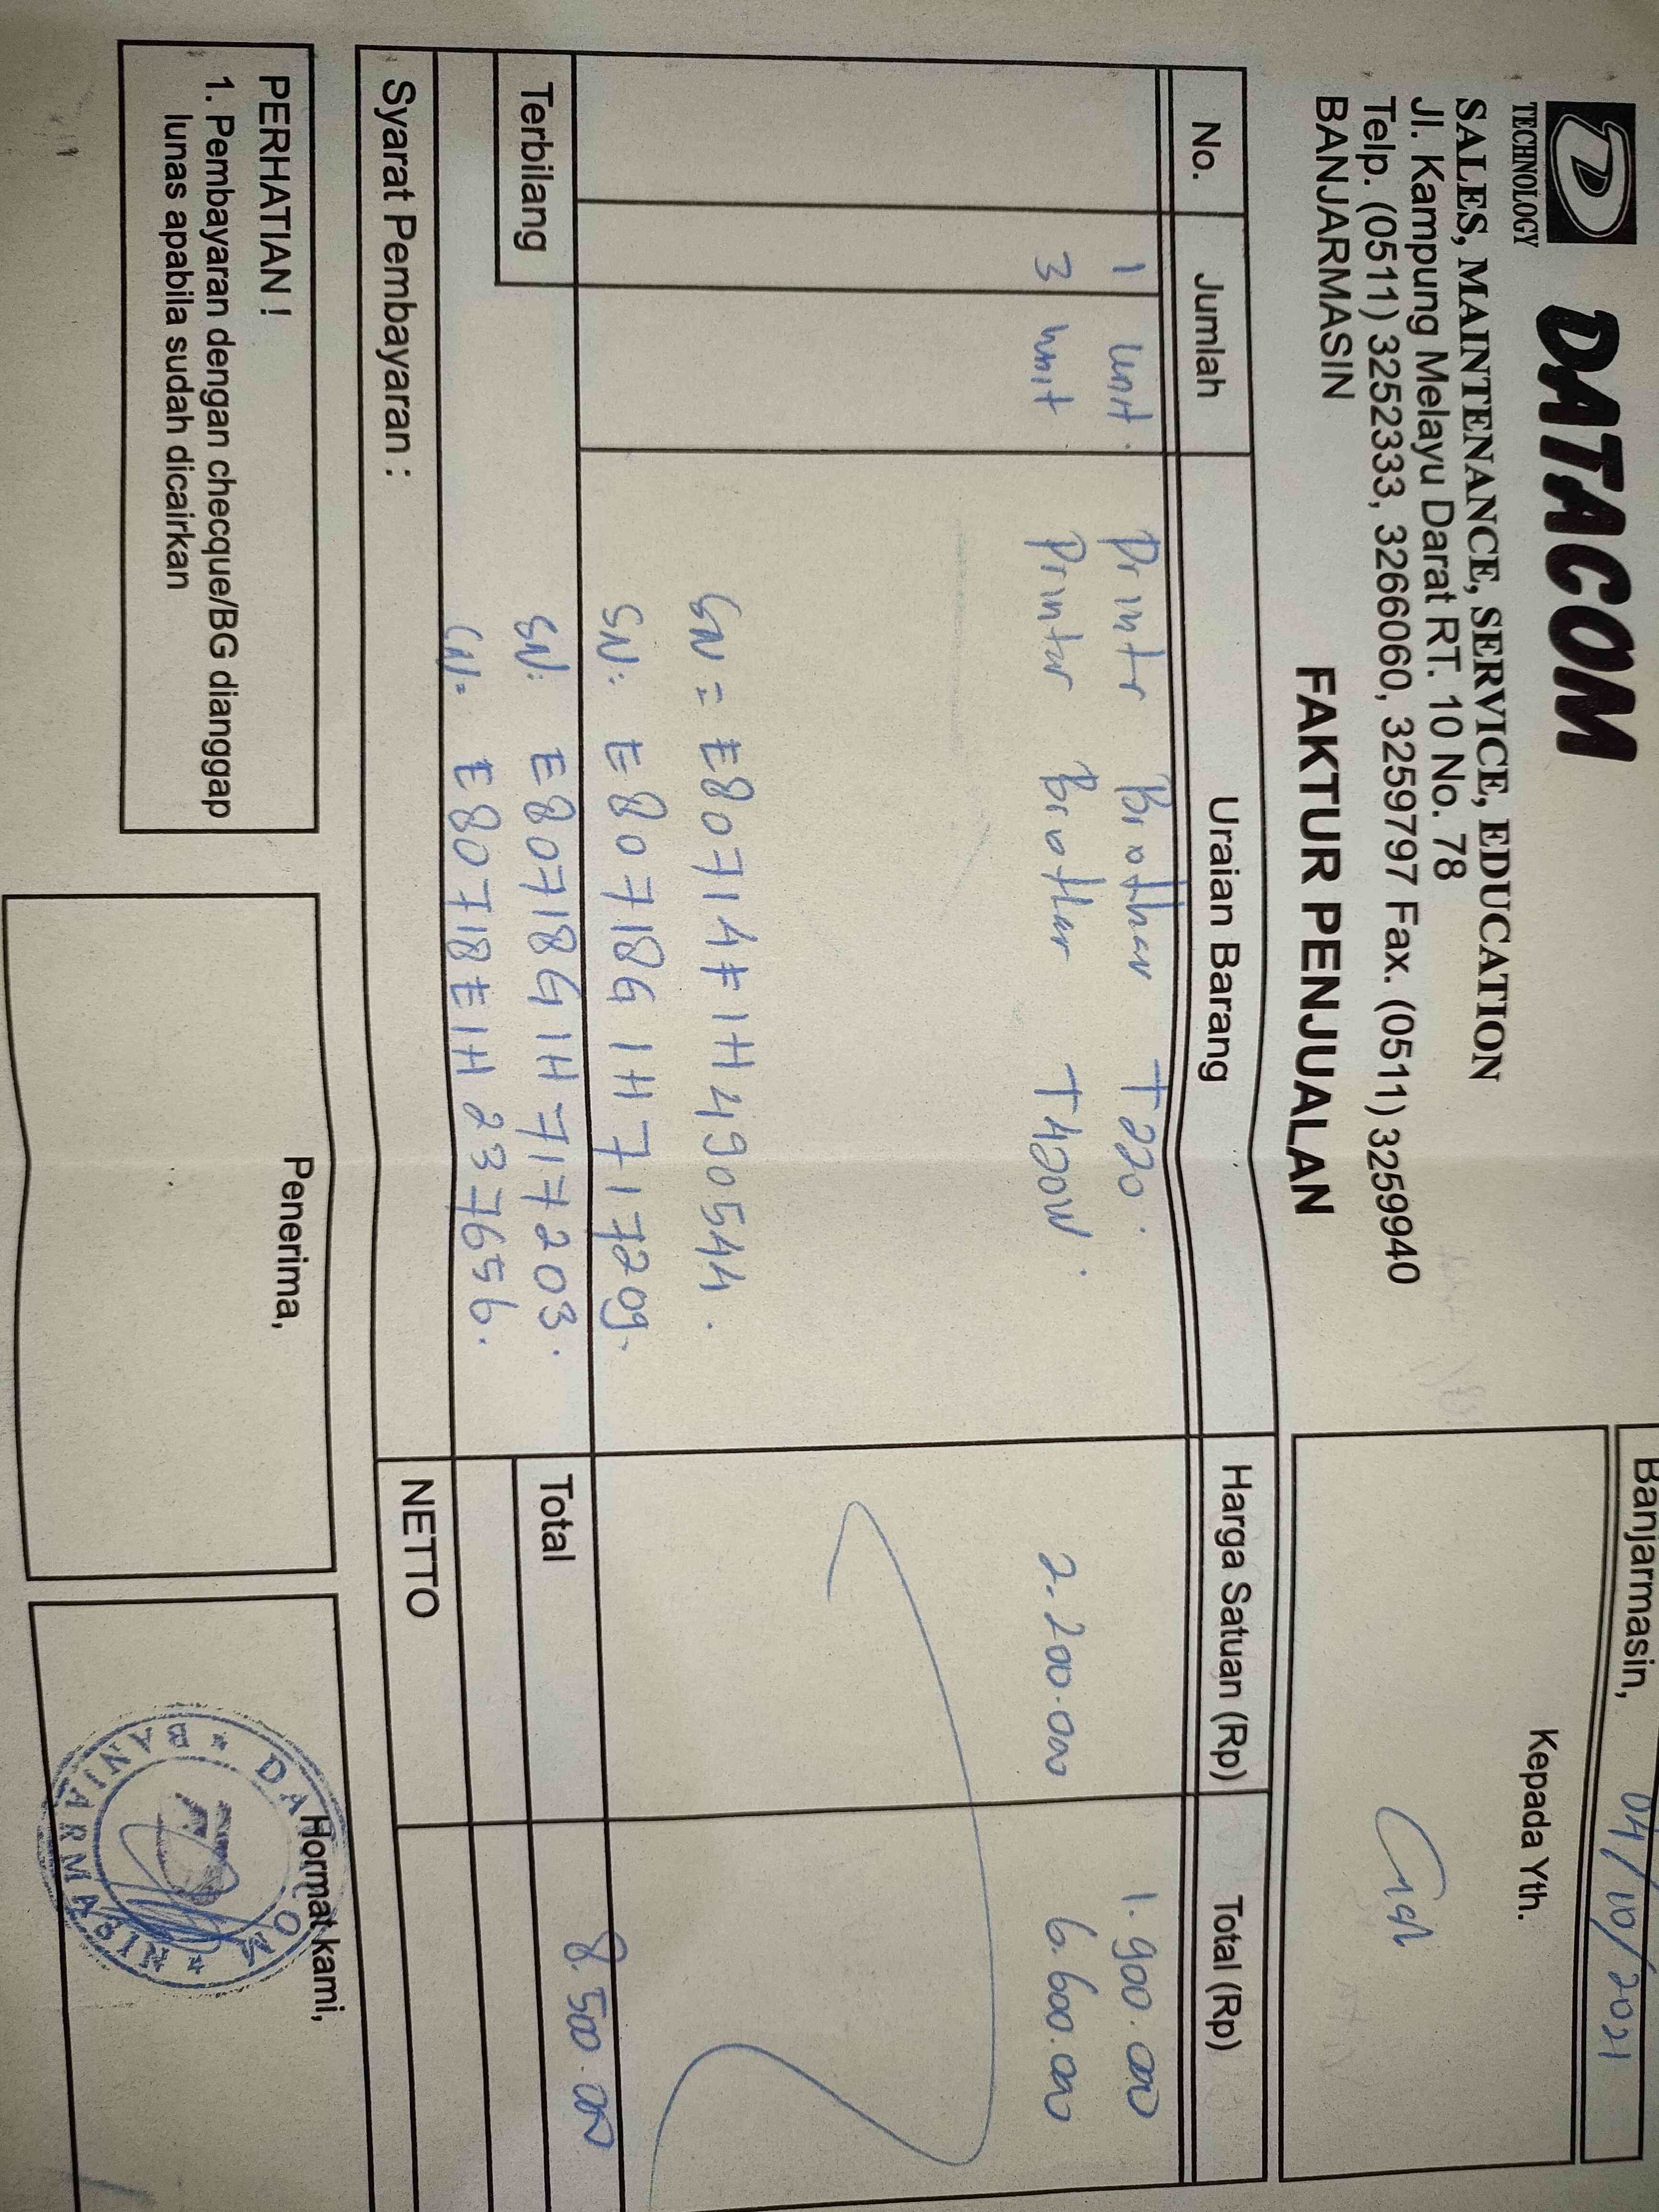 DATACOM
TECHNOLOGY
SALES, MAINTENANCE, SERVICE, EDUCATION
Jl. Kampung Melayu Darat RT. 10 No. 78
Telp. (0511) 3252333, 3266060, 3259797 Fax. (0511) 3259940
BANJARMASIN
Banjarmasin, 04/10/2021
Kepada Yth.
Cash
FAKTUR PENJUALAN
No. Jumlah Uraian Barang Harga Satuan (Rp) Total (Rp)
1 unit. Printr Brother T220. 1.900.000
3 unit Printer Brother T420W. 2.200.000 6.600.000
SN = E80714F1H490544.
SN: E80718G1H717209.
Terbilang SN: E80718G1H717203. Total 8.500.000
SN= E80718E1H237656.
Syarat Pembayaran : NETTO
PERHATIAN !
1. Pembayaran dengan checque/BG dianggap
lunas apabila sudah dicairkan
Penerima,
Hormat kami,
DATACOM
BANJARMASIN